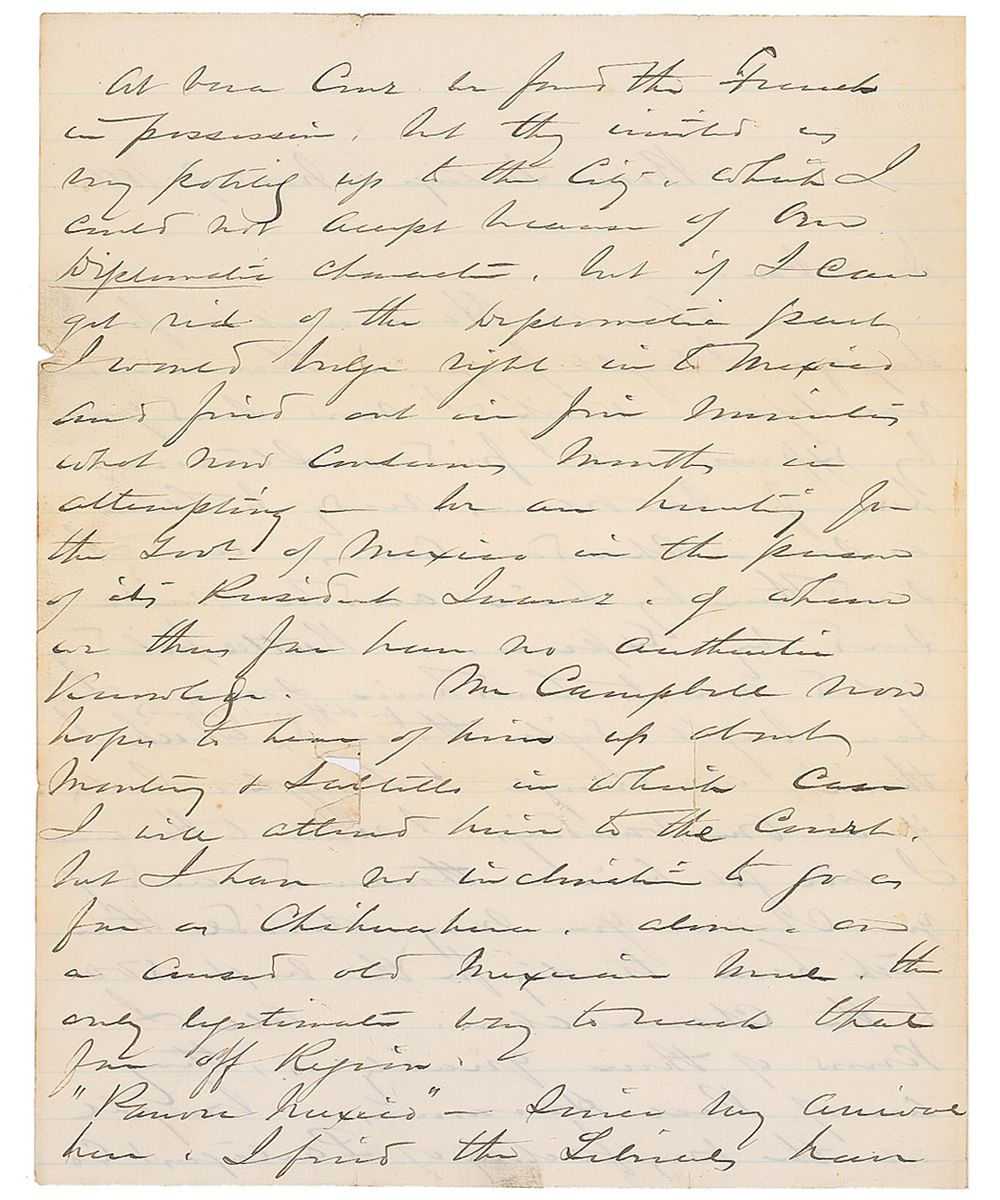 At Vera Cruz we found the French
in possession, but they invited us
very politely up to the City, which I
could not accept because of Our
Diplomatic Character, but if I can
get rid of the Diplomatic part
I would bulge right in to Mexico
and find out in five Minutes
what now consumes Months in
attempting — We are hunting for
the Govt of Mexico in the person
of its President Juarez, of whom
we thus far have no authentic
Knowledge. Mr Campbell now
hopes to hear of him up about
Monterey & Saltillo in which Case
I will attend him to the Court,
but I have no inclination to go as
far as Chihuahua, alone, on
a cursed old Mexican Mule, the
only legitimate way to reach that
far off Region.
"Pauvre Mexico" — Since my arrival
here, I find the Liberals have